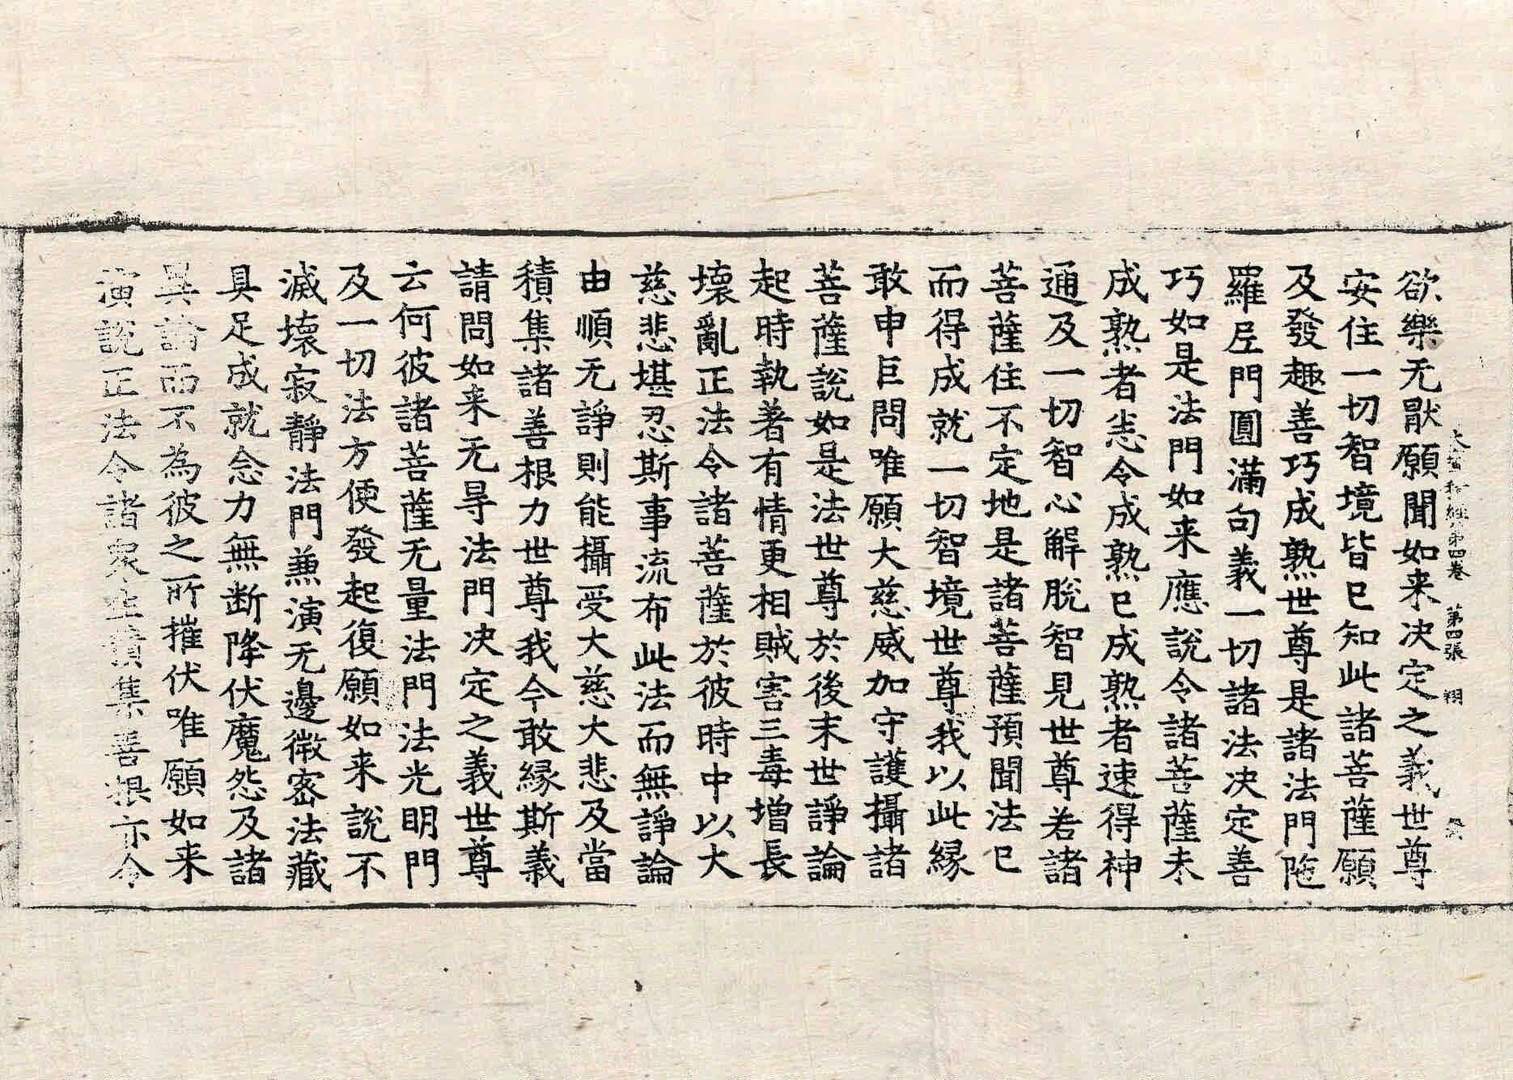 欲樂无猒願聞如来决定之義世尊
大寶積經第四卷 第四張 翔
安住一切智境皆已知此諸菩薩願
及發趣善巧成熟世尊是諸法門陁
羅𡰱門圓滿句義一切諸法决定善
巧如是法門如来應說令諸菩薩未
成熟者悉令成熟已成熟者速得神
通及一切智心解脫智見世尊若諸
菩薩住不定地是諸菩薩預聞法已
而得成就一切智境世尊我以此縁
敢申巨問唯願大慈威加守護攝諸
菩薩說如是法世尊於後末世諍論
起時執著有情更相賊害三毒增長
壞亂正法令諸菩薩於彼時中以大
慈悲堪忍斯事流布此法而無諍論
由順无諍則能攝受大慈大悲及當
積集諸善根力世尊我今敢縁斯義
請問如来无㝵法門决定之義世尊
云何彼諸菩薩无量法門法光明門
及一切法方便發起復願如来說不
滅壞寂靜法門兼演无邊微密法藏
具足成就念力無断降伏魔怨及諸
異論而不為彼之所摧伏唯願如来
演說正法令諸衆生積集善根亦令